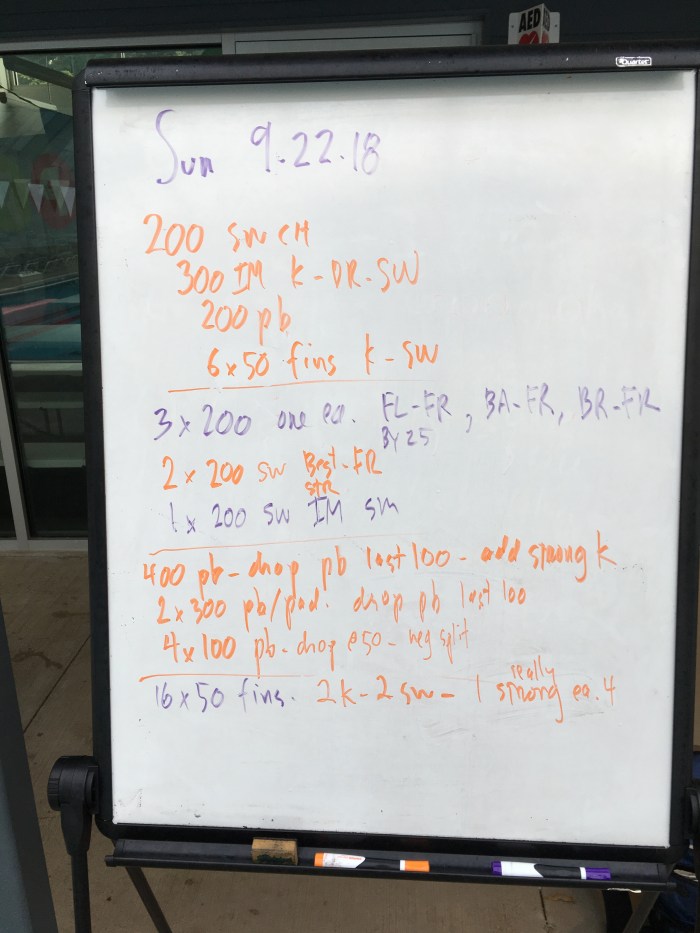 AED
Quartet
Sun 9.22.18
200 SW CH
300 IM K-DR-SW
200 pb
6x50 fins K-SW
3x200 one ea. FL-FR, BA-FR, BR-FR
BY 25
2x200 SW Best-FR
STR
1x200 SW IM sm
400 pb-drop pb last 100-add strong K
2x300 pb/pad. drop pb last 100
4x100 pb-drop @50-neg split
really
16x50 fins. 2K-2SW-1 strong ea. 4